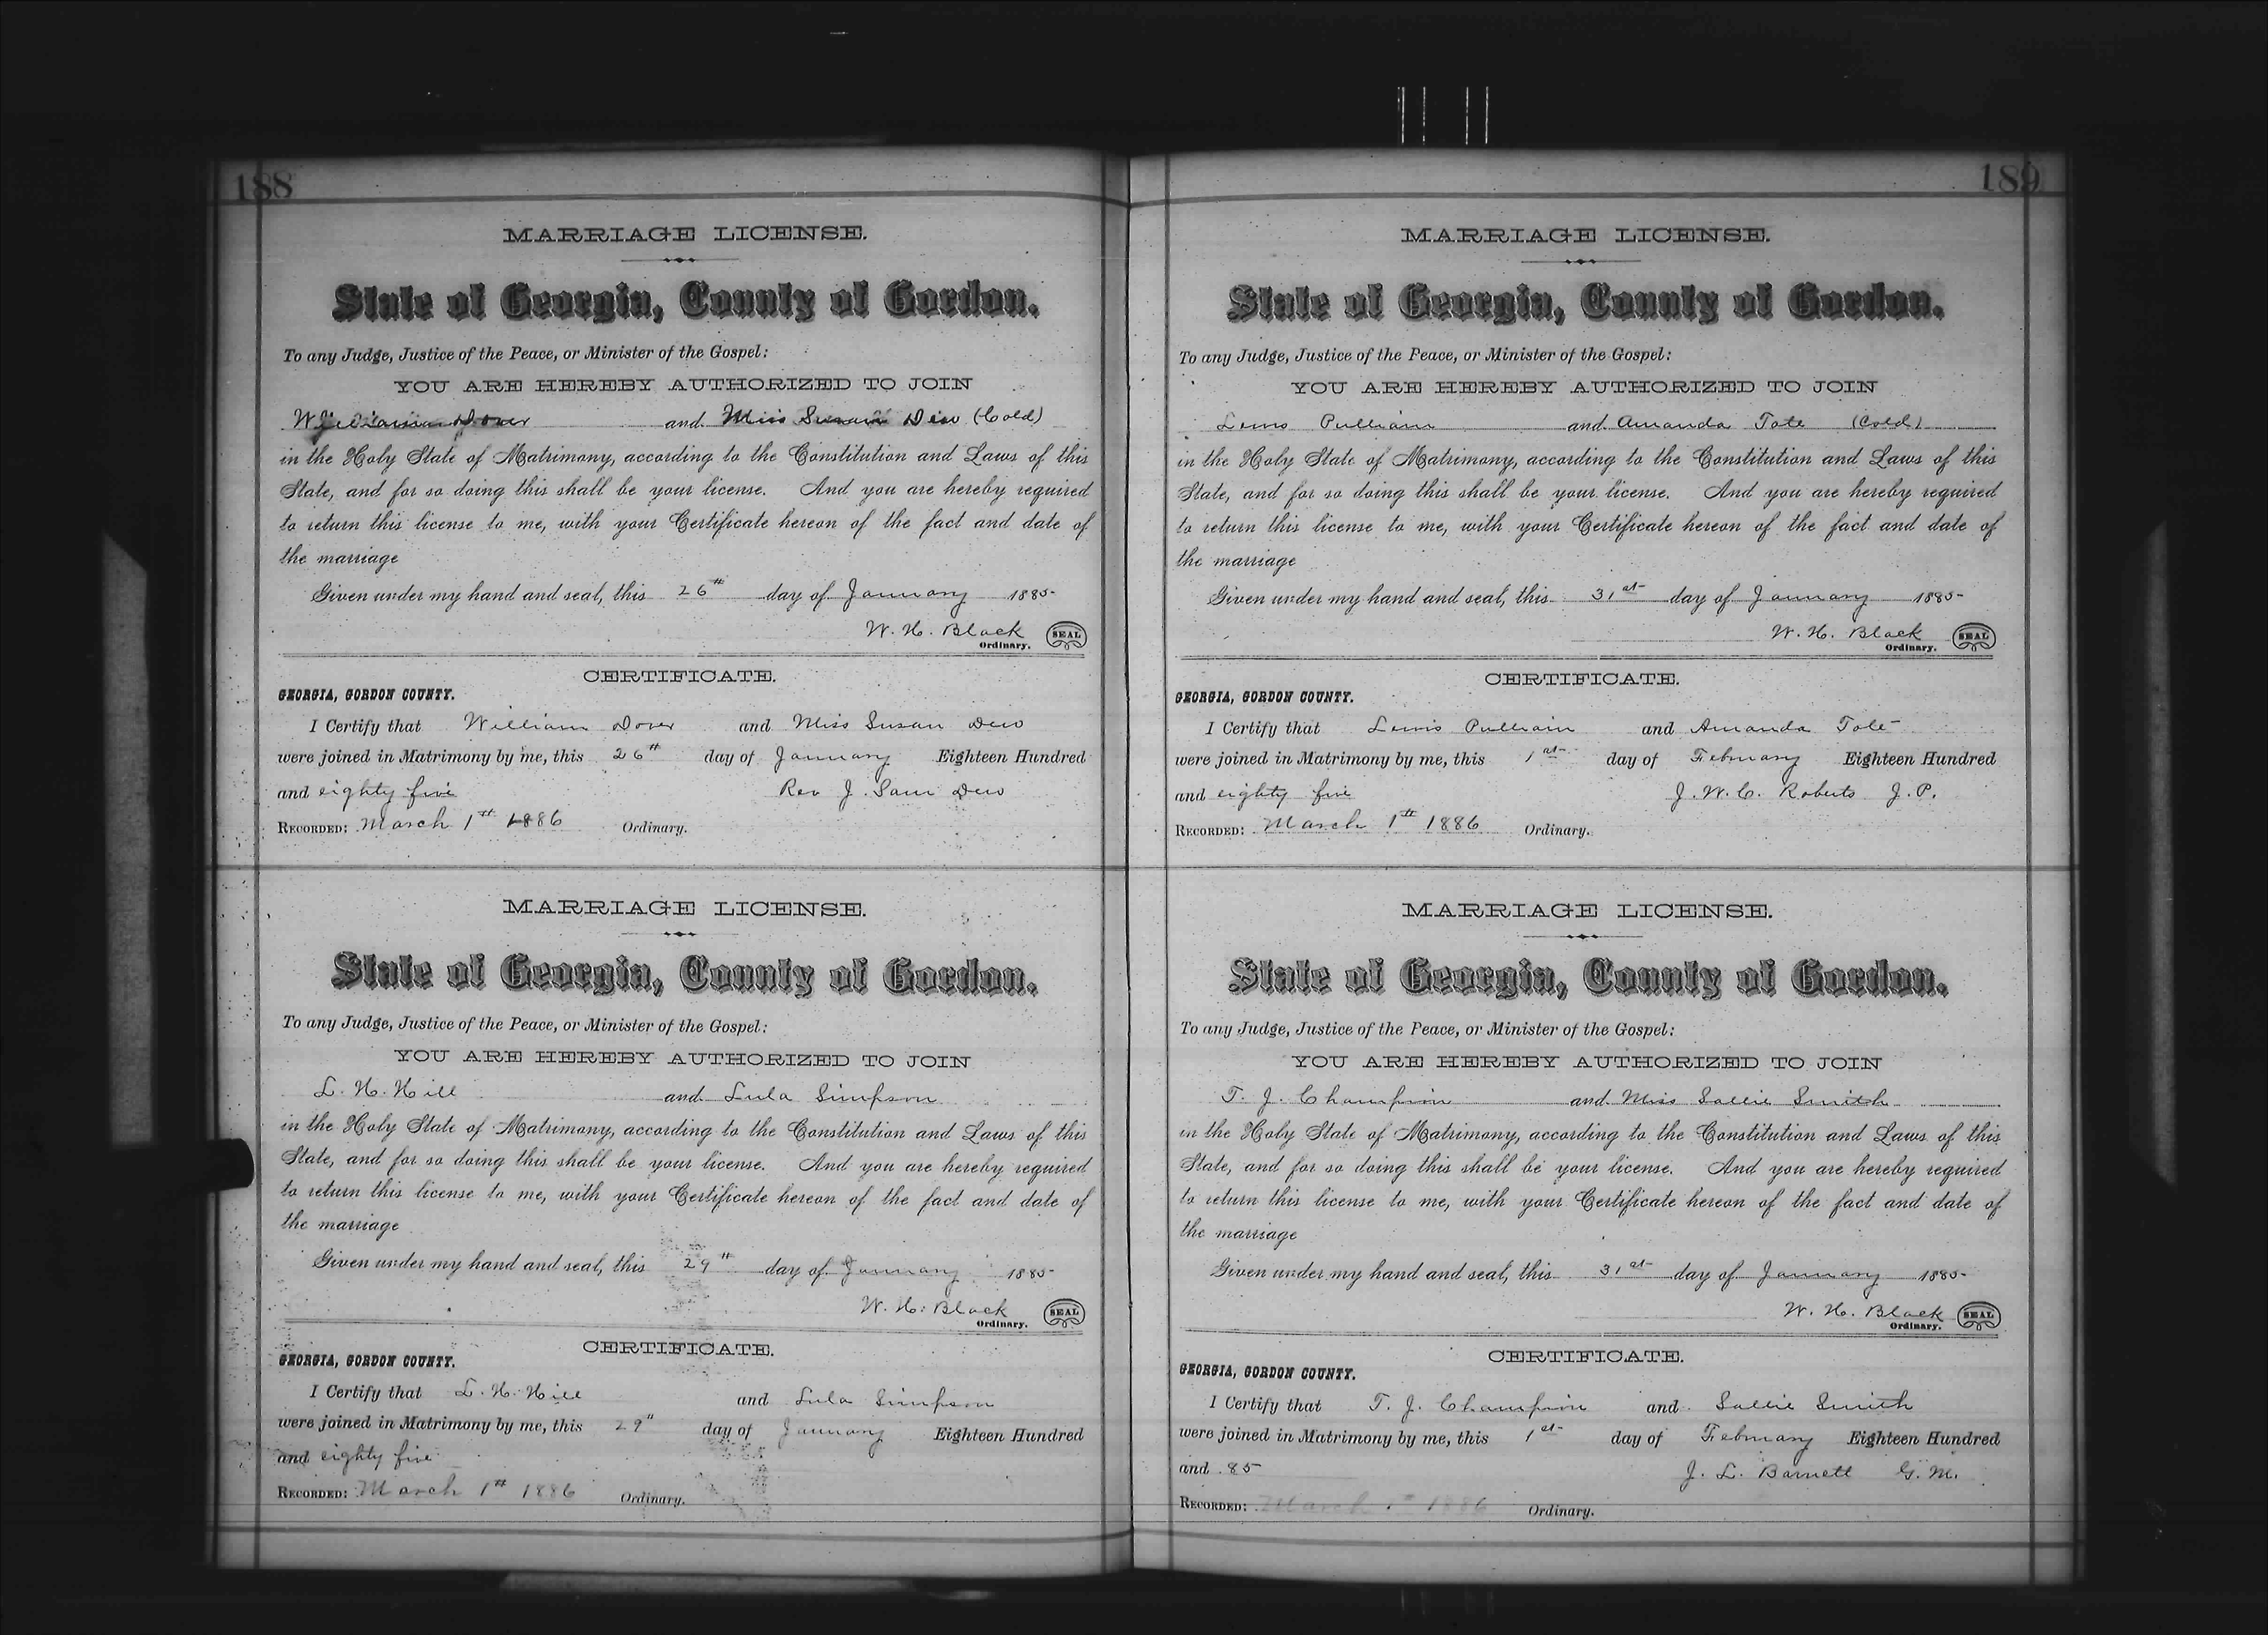 188
MARRIAGE LICENSE.
State of Georgia, County of Gordon.
To any Judge, Justice of the Peace, or Minister of the Gospel:
YOU ARE HEREBY AUTHORIZED TO JOIN
William Dover and Miss Susan Dew (Cold)
in the Holy State of Matrimony, according to the Constitution and Laws of this
State, and for so doing this shall be your license. And you are hereby required
to return this license to me, with your Certificate hereon of the fact and date of
the marriage
Given under my hand and seal, this 26th day of January 1885
W. H. Black SEAL
Ordinary.
CERTIFICATE.
GEORGIA, GORDON COUNTY.
I Certify that William Dover and Miss Susan Dew
were joined in Matrimony by me, this 26th day of January Eighteen Hundred
and eighty five Rev J. Sam Dew
RECORDED: March 1st 1886 Ordinary.
MARRIAGE LICENSE.
State of Georgia, County of Gordon.
To any Judge, Justice of the Peace, or Minister of the Gospel:
YOU ARE HEREBY AUTHORIZED TO JOIN
L. H. Hill and Lula Simpson
in the Holy State of Matrimony, according to the Constitution and Laws of this
State, and for so doing this shall be your license. And you are hereby required
to return this license to me, with your Certificate hereon of the fact and date of
the marriage
Given under my hand and seal, this 29th day of January 1885
W. H. Black SEAL
Ordinary.
CERTIFICATE.
GEORGIA, GORDON COUNTY.
I Certify that L. H. Hill and Lula Simpson
were joined in Matrimony by me, this 29" day of January Eighteen Hundred
and eighty five
RECORDED: March 1st 1886 Ordinary.
189
MARRIAGE LICENSE.
State of Georgia, County of Gordon.
To any Judge, Justice of the Peace, or Minister of the Gospel:
YOU ARE HEREBY AUTHORIZED TO JOIN
Lewis Pulliam and Amanda Tate (Cold)
in the Holy State of Matrimony, according to the Constitution and Laws of this
State, and for so doing this shall be your license. And you are hereby required
to return this license to me, with your Certificate hereon of the fact and date of
the marriage
Given under my hand and seal, this 31st day of January 1885
W. H. Black SEAL
Ordinary.
CERTIFICATE.
GEORGIA, GORDON COUNTY.
I Certify that Lewis Pulliam and Amanda Tate
were joined in Matrimony by me, this 1st day of February Eighteen Hundred
and eighty five J. W. C. Roberts J. P.
RECORDED: March 1st 1886 Ordinary.
MARRIAGE LICENSE.
State of Georgia, County of Gordon.
To any Judge, Justice of the Peace, or Minister of the Gospel:
YOU ARE HEREBY AUTHORIZED TO JOIN
T. J. Champion and Miss Sallie Smith
in the Holy State of Matrimony, according to the Constitution and Laws of this
State, and for so doing this shall be your license. And you are hereby required
to return this license to me, with your Certificate hereon of the fact and date of
the marriage
Given under my hand and seal, this 31st day of January 1885
W. H. Black SEAL
Ordinary.
CERTIFICATE.
GEORGIA, GORDON COUNTY.
I Certify that T. J. Champion and Sallie Smith
were joined in Matrimony by me, this 1st day of February Eighteen Hundred
and 85 J. L. Barnett G. M.
RECORDED: March 1st 1886 Ordinary.